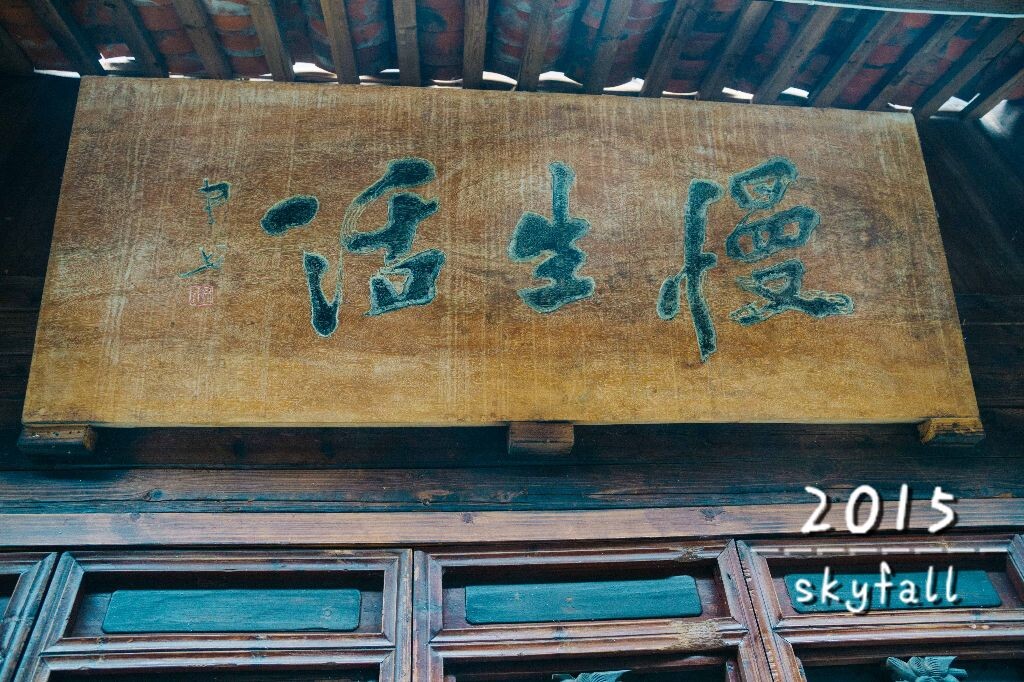 慢生活
2015
skyfall